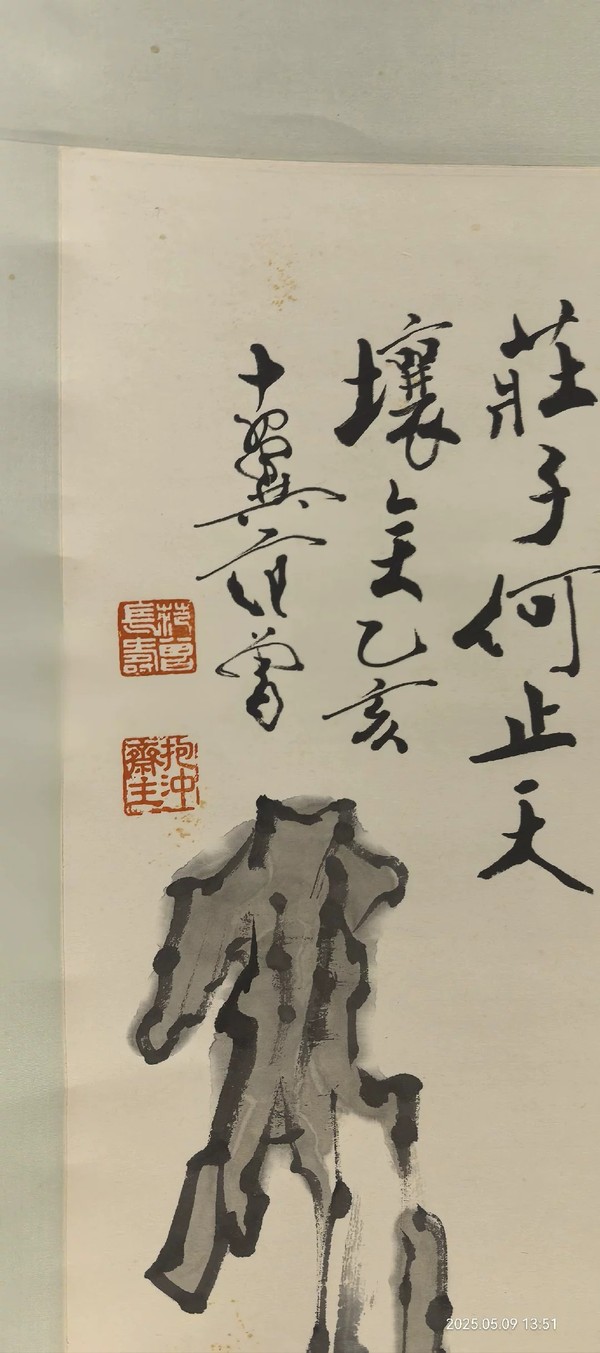 莊子何止天
壤矣乙亥
十翼范曾
范曾
長壽
抱沖
齋主
2025.05.09 13:51